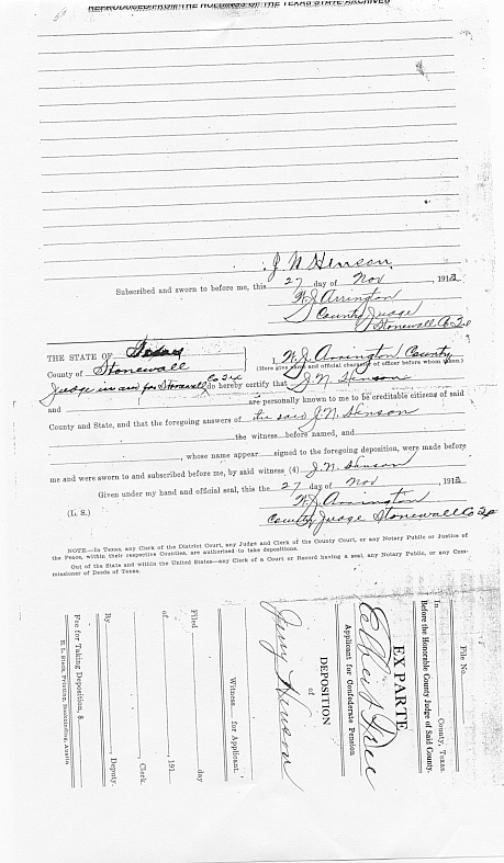 REPRODUCED FROM THE HOLDINGS OF THE TEXAS STATE ARCHIVES
J N Henson
Subscribed and sworn to before me, this 27 day of Nov, 1912
W. J. Arrington
County Judge
Stonewall Co Tex
THE STATE OF Texas
County of Stonewall I, W. J. Arrington County
(Here give name and official character of officer before whom taken.)
Judge in and for Stonewall Co Tex do hereby certify that J. N. Henson
and are personally known to me to be creditable citizens of said
County and State, and that the foregoing answers of the said J. N. Henson
the witness before named, and
, whose name appear signed to the foregoing deposition, were made before
me and were sworn to and subscribed before me, by said witness (4) J. N. Henson
Given under my hand and official seal, this the 27 day of Nov, 1912
W. J. Arrington
(L. S.) County Judge Stonewall Co Tex
NOTE.—In Texas, any Clerk of the District Court, any Judge and Clerk of the County Court, or any Notary Public or Justice of
the Peace, within their respective Counties, are authorized to take depositions.
Out of the State and within the United States—any Clerk of a Court or Record having a seal, any Notary Public, or any Com-
missioner of Deeds of Texas.
File No.
In County, Texas.
Before the Honorable County Judge of Said County.
EX PARTE
Applicant for Confederate Pension
DEPOSITION
of
Jerry Henson
Witness for Applicant.
Filed day
of , 191
, Clerk.
By , Deputy.
Fee for Taking Deposition, $
E. L. Steck, Printing, Bookbinding, Austin